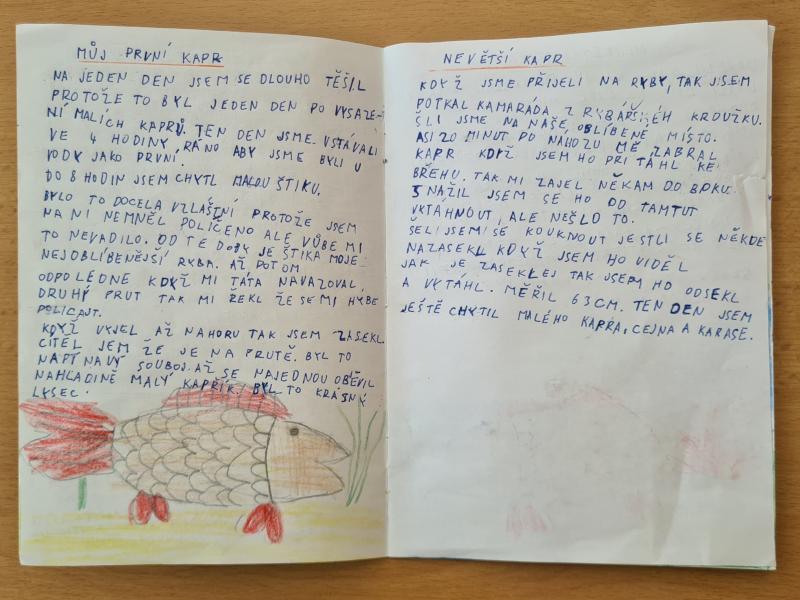 MŮJ PRVNÍ KAPR
NA JEDEN DEN JSEM SE DLOUHO TĚŠIL
PROTOŽE TO BYL JEDEN DEN PO VYSAZE-
NÍ MALÍCH KAPRŮ. TEN DEN JSME VSTÁVALI
VE 4 HODINY RÁNO ABY JSME BYLI U
VODY JAKO PRVNÍ.
DO 8 HODIN JSEM CHYTL MALOU ŠTIKU.
BYLO TO DOCELA VZLAŠTNÍ PROTOŽE JSEM
NA NI NEMNĚL POLÍČENO ALE VŮBE MI
TO NEVADILO. OD TÉ DOBY JE ŠTIKA MOJE
NEJOBLÍBENĚJŠÍ RYBA. AŽ POTOM
ODPOLÉDNE KDYŽ MI TÁTA NAVAZOVAL
DRUHÝ PRUT TAK MI ŘEKL ŽE SE MI HÝBE
POLICAJT.
KDYŽ VYJEL AŽ NAHORU TAK JSEM ZASEKL.
CÍTĚL JEM ŽE JE NA PRUTĚ. BYL TO
NAPÍNAVÝ SOUBOJ. AŽ SE NAJEDNOU OBĚVIL
NAHLADINĚ MALÝ KAPŘÍK. BYL TO KRÁSNÝ
LYSEC.
NEVĚTŠÍ KAPR
KDYŽ JSME PŘIJELI NA RYBY, TAK JSEM
POTKAL KAMARÁDA Z KROUŽKU.
ŠLI JSME NA NAŠE, OBLÍBENÉ MÍSTO.
ASI 20 MINUT PO NAHOZU MĚ ZABRAL
KAPR KDYŽ JSEM HO PŘITÁHL KE
BŘEHU. TAK MI ZAJEL NĚKAM DO
SNAŽIL JSEM SE HO OD TAMTUT
VYTÁHNOUT, ALE NEŠLO TO.
ŠELI JSEMI SE KOUKNOUT JESTLI SE NĚKDE
NAZASEKL KDYŽ JSEM HO VIDĚL
JAK JE ZASEKLEJ TAK JSEM HO ODSEKL
A VYTÁHL. MĚŘIL 63CM. TEN DEN JSEM
JEŠTĚ CHYTIL MALÉHO KAPRA, CEJNA A KARASE.